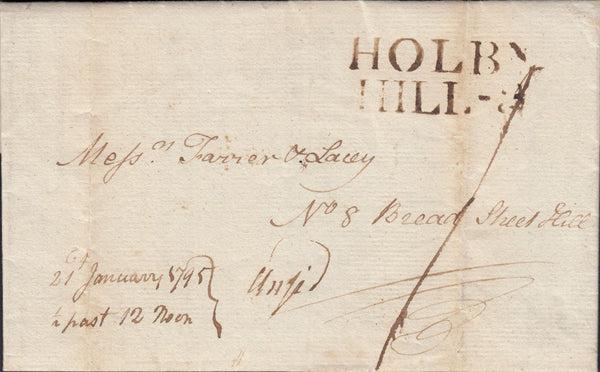 HOLBN
HILL-3
Messrs Farrer & Lacey
No 8 Bread Street Hill
21st January 1795
½ past 12 Noon
Unpd
1